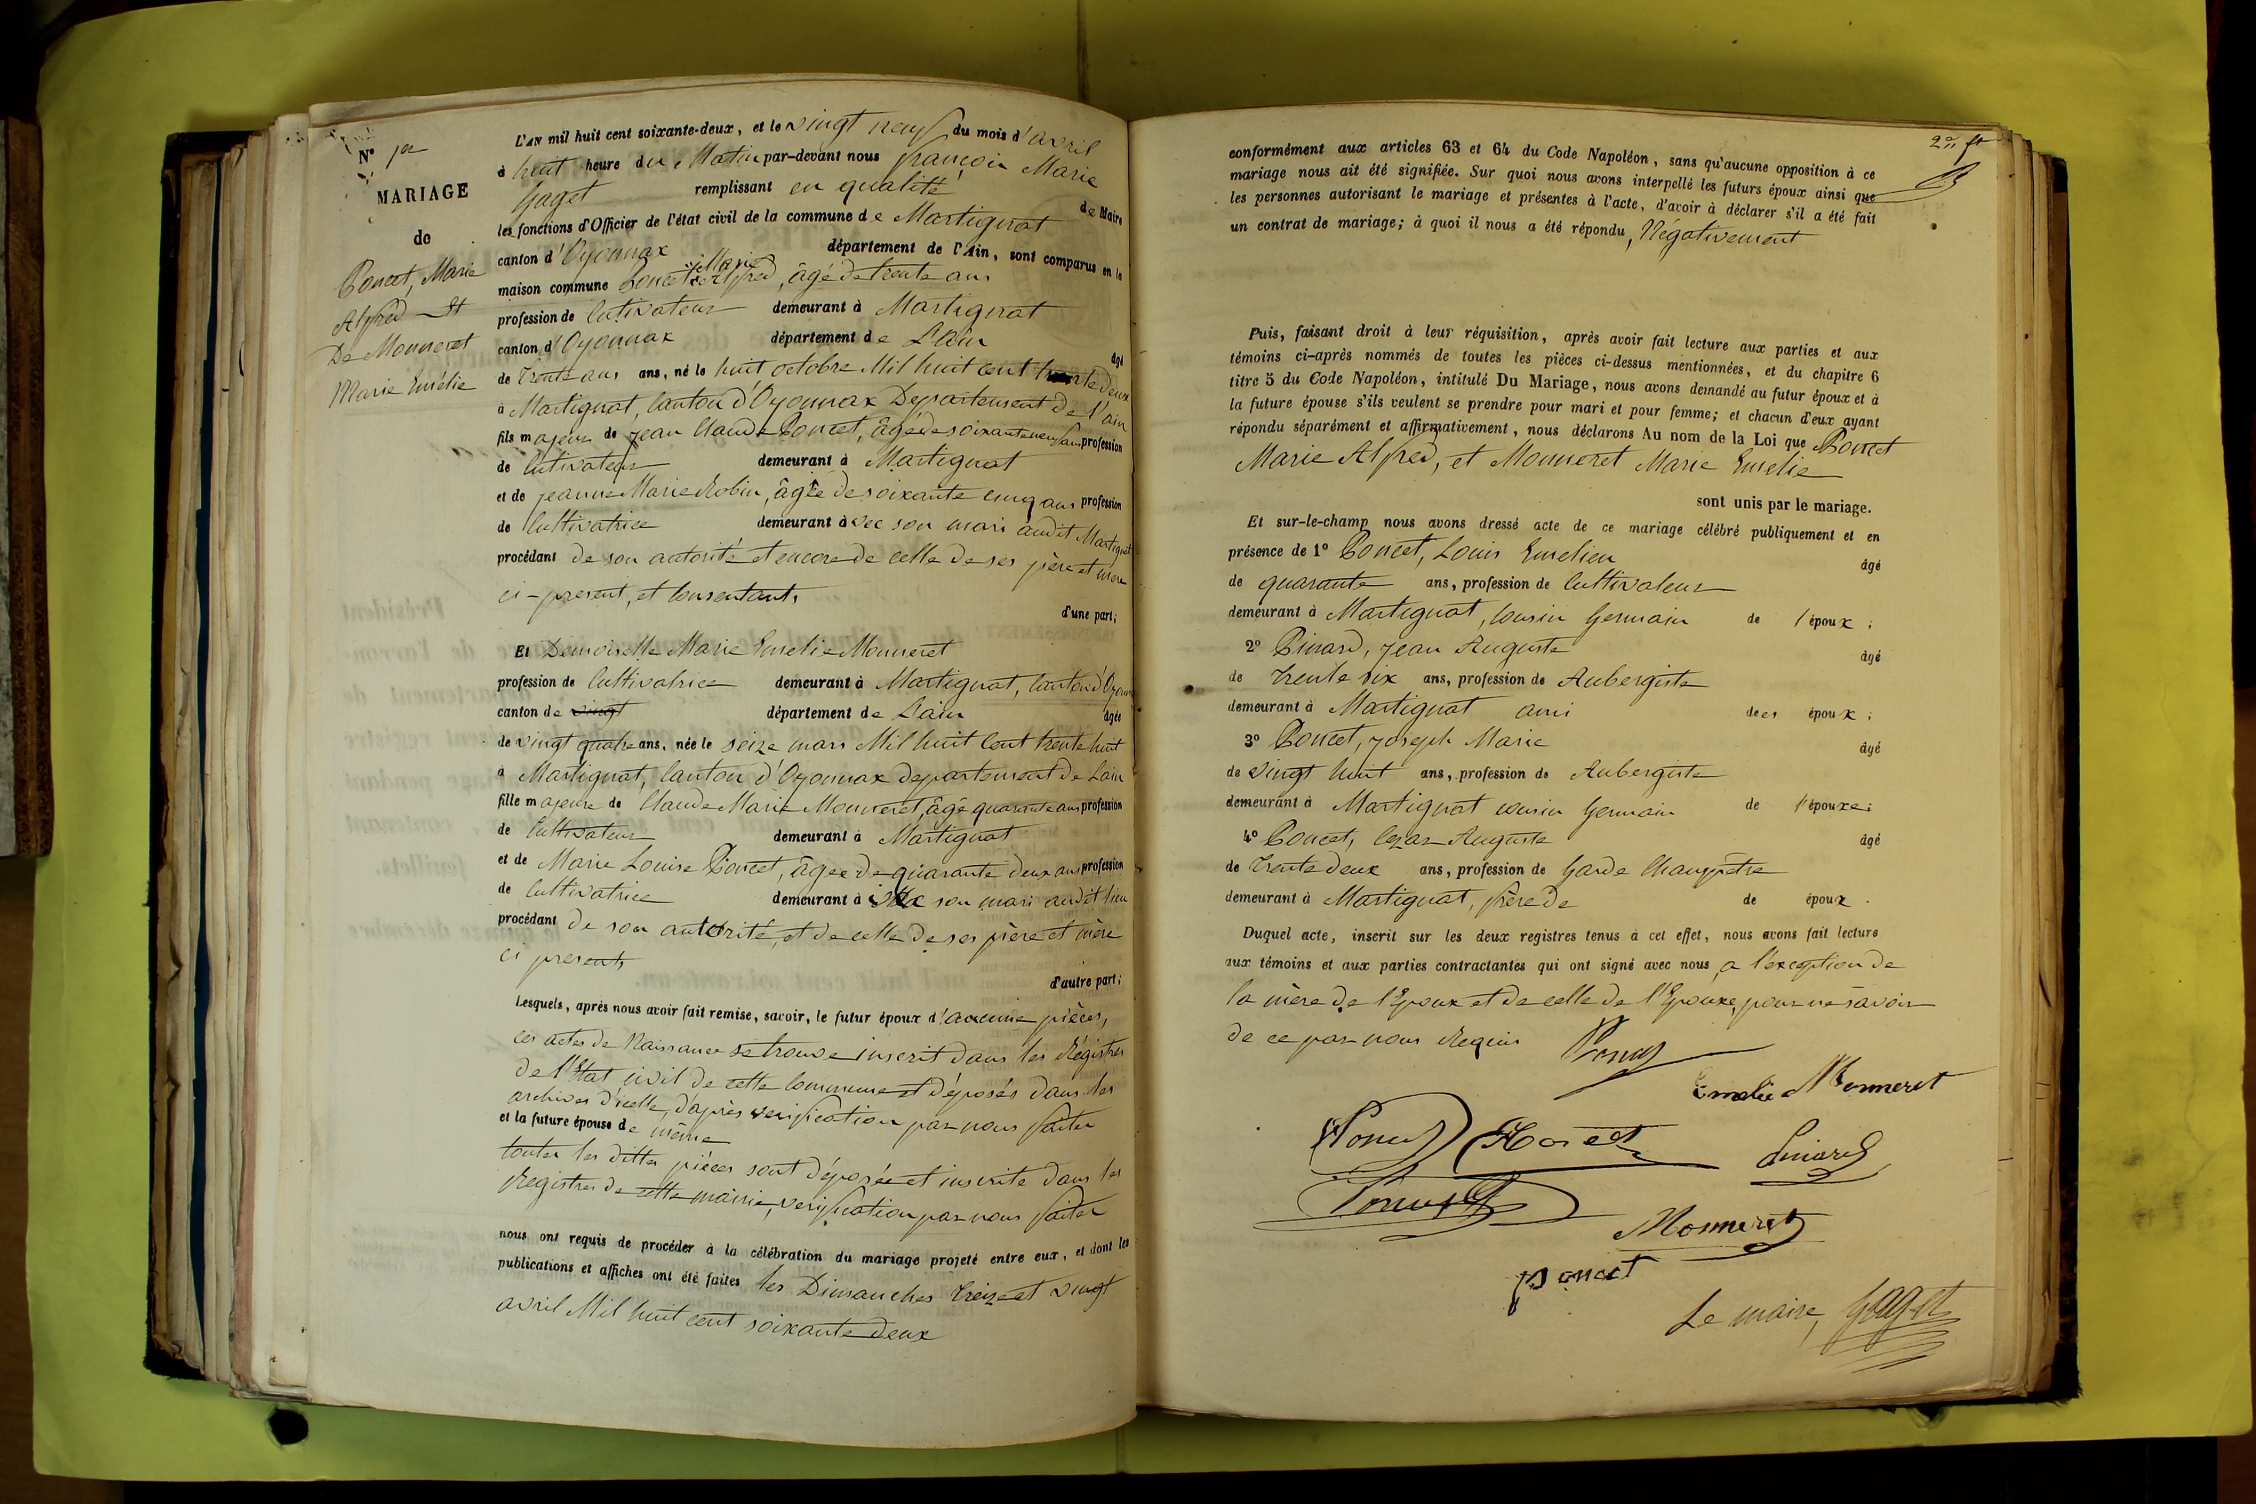 N° 1er
MARIAGE
de
Poncet, Marie
Alfred Et
De Monneret
Marie Emélie
L'AN mil huit cent soixante-deux, et le vingt neuf du mois d'avril
à huit heure du Matin par-devant nous françois Marie
Gaget remplissant en qualité de Maire
les fonctions d'Officier de l'état civil de la commune de Martignat
canton d'Oyonnax département de l'Ain, sont comparus en la
maison commune Poncet Marie Alfred, âgé de trente ans
profession de Cultivateur demeurant à Martignat
canton d'Oyonnax département de L'ain âgé
de Trente ans ans, né le huit octobre Mil huit cent trente deux
à Martignat, Canton d'Oyonnax Departement de l'ain
fils majeur de jean Claude Poncet, âgé de soixante neuf ans profession
de Cultivateur demeurant à Martignat
et de jeanne Marie Robin, âgée de soixante cinq ans profession
de Cultivatrice demeurant avec son mari audit Martignat
procédant de son autorité et encore de celle de ses père et mère
ci-present, et Consentants
d'une part;
Et Demoiselle Marie Emelie Monneret
profession de Cultivatrice demeurant à Martignat, Canton d'Oyonnax
canton de vingt département de L'ain âgée
de vingt quatre ans, née le seize mars Mil huit Cent trente huit
à Martignat, Canton d'Oyonnax departement de Lain
fille majeure de Claude Marie Monneret, âgé quarante ans profession
de Cultivateur demeurant à Martignat
et de Marie Louise Poncet, âgée de quarante deux ans profession
de Cultivatrice demeurant à son mari audit lieu
procédant de son autorité, et de celle de ses père et mère
ci presents
d'autre part;
Lesquels, après nous avoir fait remise, savoir, le futur époux d'aucune pièces,
ces actes de Naissance se trouve inscrit dans les Régistres
de l'Etat civil de cette Commune et déposés dans les
archives d'icelle, d'après verification par nous faites
et la future épouse de même
toutes les dittes pièces sont déposée et inscrite dans les
Registres de cette mairie, verification par nous faites
nous ont requis de procéder à la célébration du mariage projeté entre eux, et dont les
publications et affiches ont été faites les Dimanches treize et vingt
avril Mil huit cent soixante deux
2e ft
conformément aux articles 63 et 64 du Code Napoléon, sans qu'aucune opposition à ce
mariage nous ait été signifiée. Sur quoi nous avons interpellé les futurs époux ainsi que
les personnes autorisant le mariage et présentes à l'acte, d'avoir à déclarer s'il a été fait
un contrat de mariage; à quoi il nous a été répondu, Négativement
Puis, faisant droit à leur réquisition, après avoir fait lecture aux parties et aux
témoins ci-après nommés de toutes les pièces ci-dessus mentionnées, et du chapitre 6
titre 5 du Code Napoléon, intitulé Du Mariage, nous avons demandé au futur époux et à
la future épouse s'ils veulent se prendre pour mari et pour femme; et chacun d'eux ayant
répondu séparément et affirmativement, nous déclarons Au nom de la Loi que Poncet
Marie Alfred, et Monneret Marie Emelie
sont unis par le mariage.
Et sur-le-champ nous avons dressé acte de ce mariage célébré publiquement et en
présence de 1° Poncet, Louis Emelien âgé
de quarante ans, profession de Cultivateur
demeurant à Martignat, Cousin Germain de l'époux;
2° Pinard, jean Auguste âgé
de Trente six ans, profession de Aubergiste
demeurant à Martignat ami des époux;
3° Poncet, joseph Marie âgé
de vingt huit ans, profession de Aubergiste
demeurant à Martignat cousin Germain de l'épouxe;
4° Poncet, Cezar Auguste âgé
de trente deux ans, profession de Garde Champêtre
demeurant à Martignat, frère de de époux.
Duquel acte, inscrit sur les deux registres tenus à cet effet, nous avons fait lecture
aux témoins et aux parties contractantes qui ont signé avec nous a l'exception de
la mère de l'Epoux et de celle de l'Epouxe, pour ne savoir
de ce par nous Requis
Emelie Monneret
Poncet
Pinard
Poncet
Monneret
poncet
Le maire, Gaget